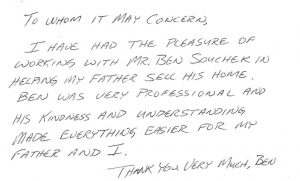 To Whom It May Concern,
I have had the pleasure of
working with Mr. Ben Soucher in
helping my father sell his home.
Ben was very professional and
his kindness and understanding
made everything easier for my
father and I.
Thank you very much, Ben